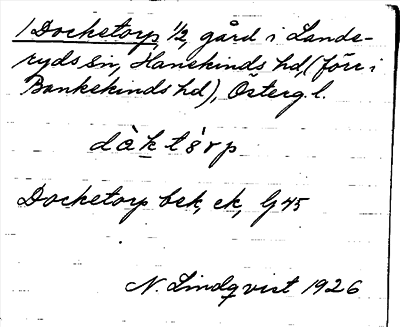 1 Docketorp 1/2, gård i Lande-
ryds sn, Hanekinds hd, (förr i
Bankekinds hd), Österg. l.
dåktårp
Docketorp bek, ek, G 45
N. Lindqvist 1926